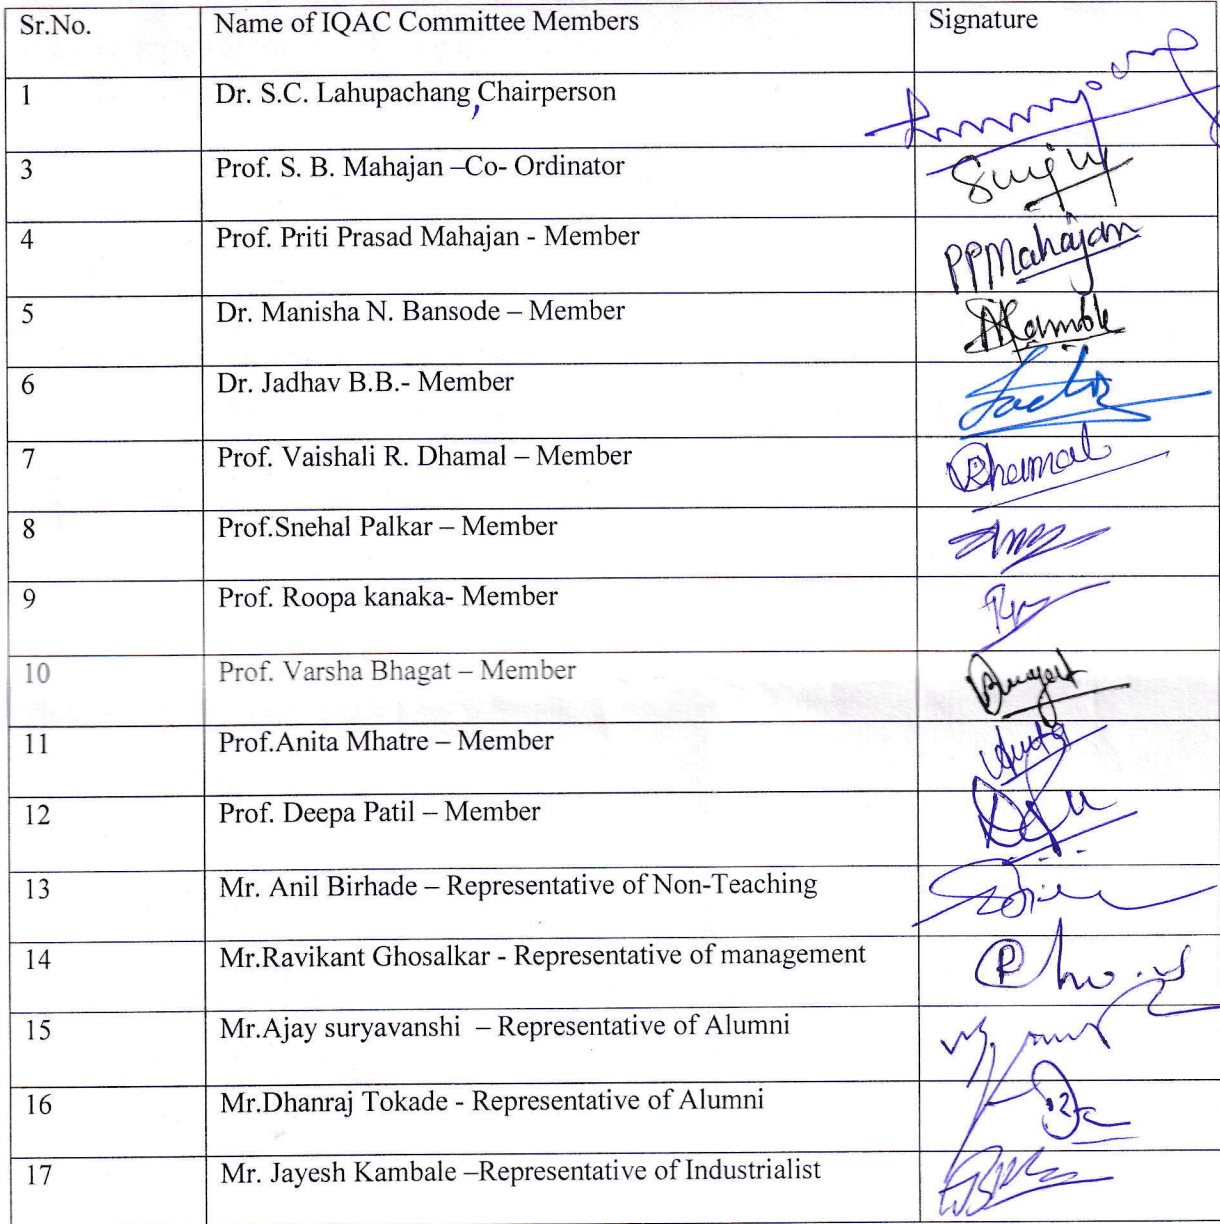 Sr.No. Name of IQAC Committee Members Signature
1 Dr. S.C. Lahupachang, Chairperson
3 Prof. S. B. Mahajan –Co- Ordinator
4 Prof. Priti Prasad Mahajan - Member PPMahajan
5 Dr. Manisha N. Bansode – Member
6 Dr. Jadhav B.B.- Member
7 Prof. Vaishali R. Dhamal – Member
8 Prof.Snehal Palkar – Member
9 Prof. Roopa kanaka- Member
10 Prof. Varsha Bhagat – Member
11 Prof.Anita Mhatre – Member
12 Prof. Deepa Patil – Member
13 Mr. Anil Birhade – Representative of Non-Teaching
14 Mr.Ravikant Ghosalkar - Representative of management
15 Mr.Ajay suryavanshi – Representative of Alumni
16 Mr.Dhanraj Tokade - Representative of Alumni
17 Mr. Jayesh Kambale –Representative of Industrialist